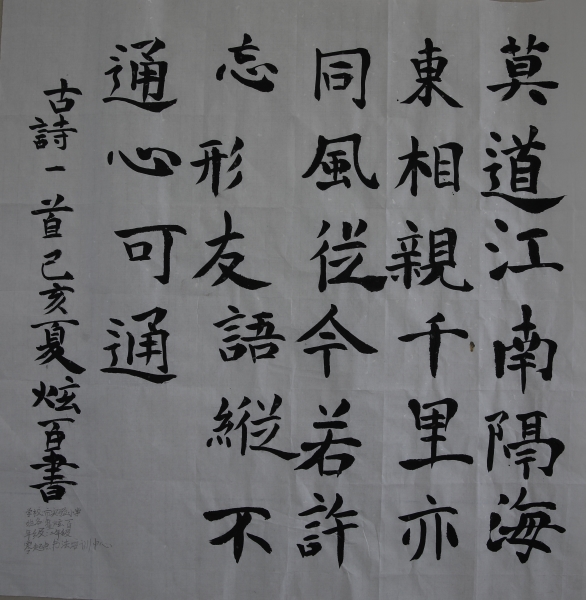 莫道江南隔海
東相親千里亦
同風從今若許
忘形友語縱不
通心可通
古詩一首己亥夏炫百書